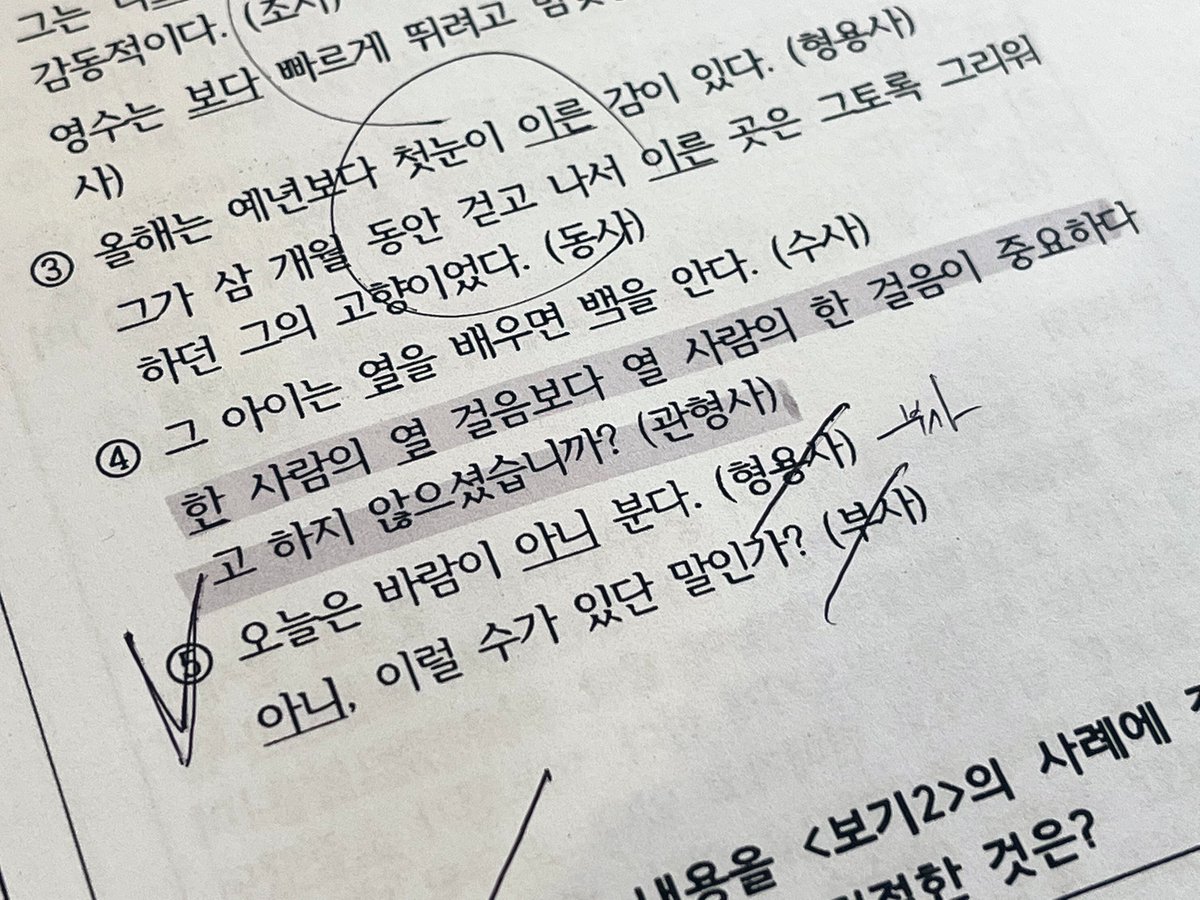 그는
감동적이다. (조사)
영수는 보다 빠르게 뛰려고
사)
③ 올해는 예년보다 첫눈이 이른 감이 있다. (형용사)
그가 삼 개월 동안 걷고 나서 이른 곳은 그토록 그리워
하던 그의 고향이었다. (동사)
④ 그 아이는 열을 배우면 백을 안다. (수사)
한 사람의 열 걸음보다 열 사람의 한 걸음이 중요하다
고 하지 않으셨습니까? (관형사)
⑤ 오늘은 바람이 아니 분다. (형용사) 부사
아니, 이럴 수가 있단 말인가? (부사)
내용을 <보기2>의 사례에
적절한 것은?